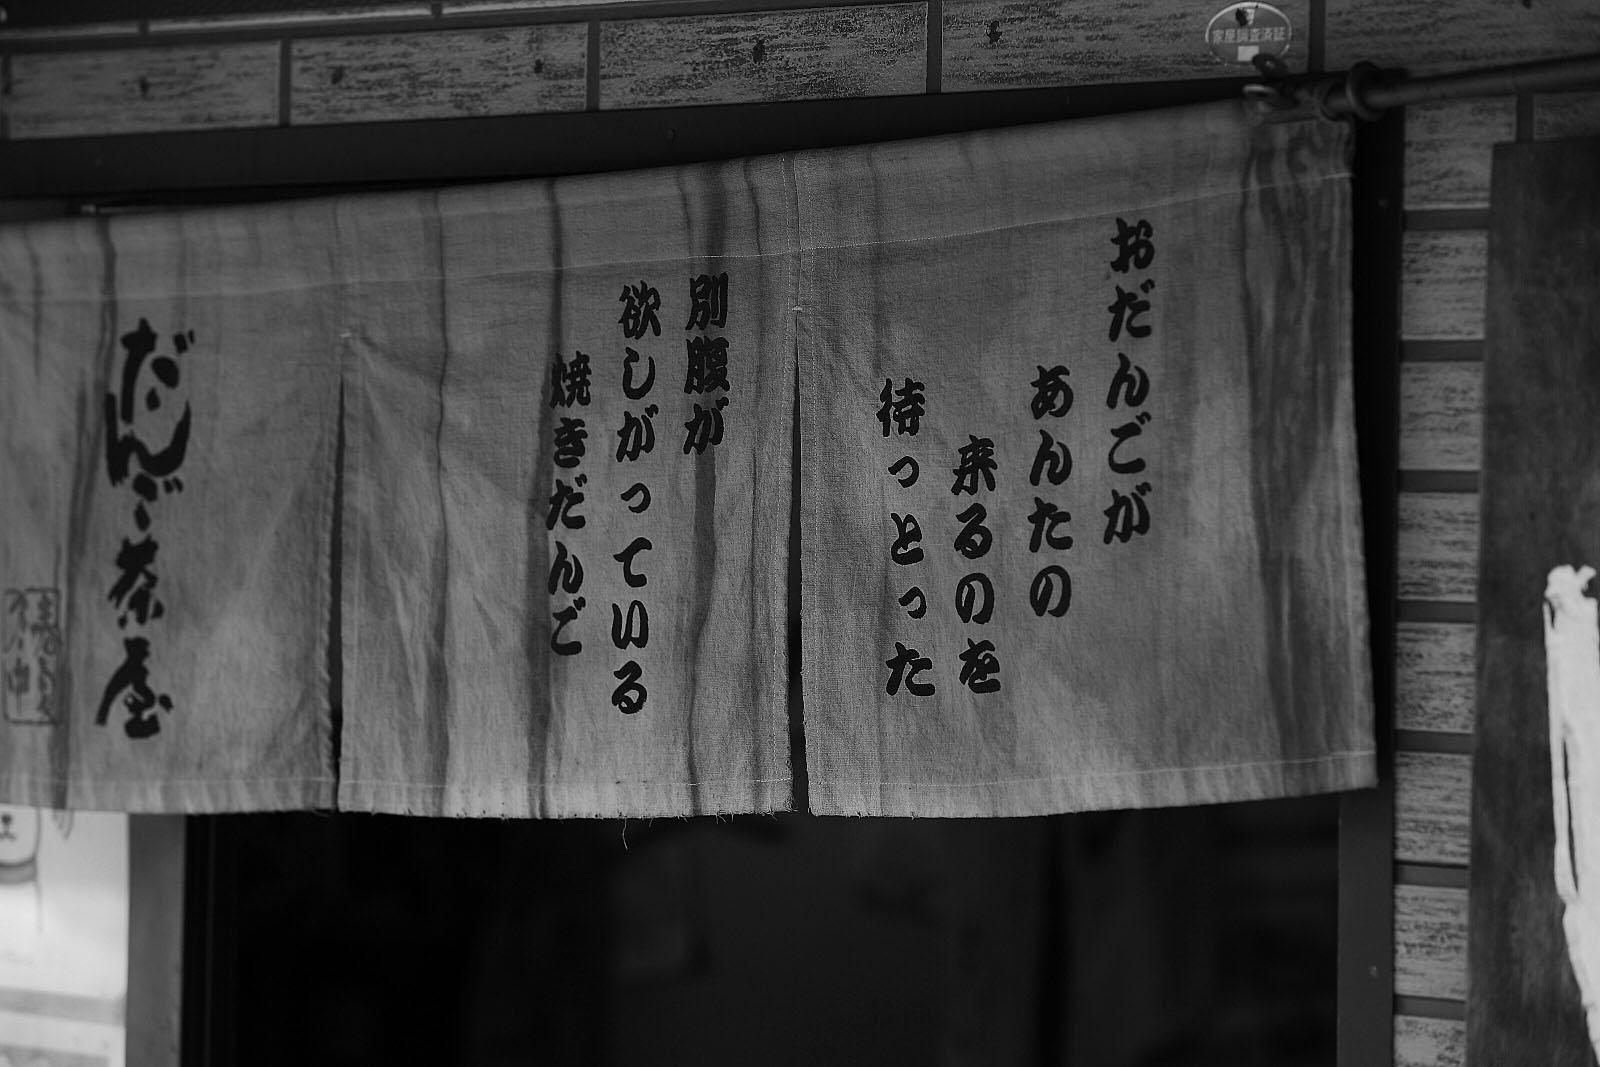 家屋調査済証
おだんごが
あんたの
来るのを
待っとった
別腹が
欲しがっている
焼きだんご
だんご茶屋